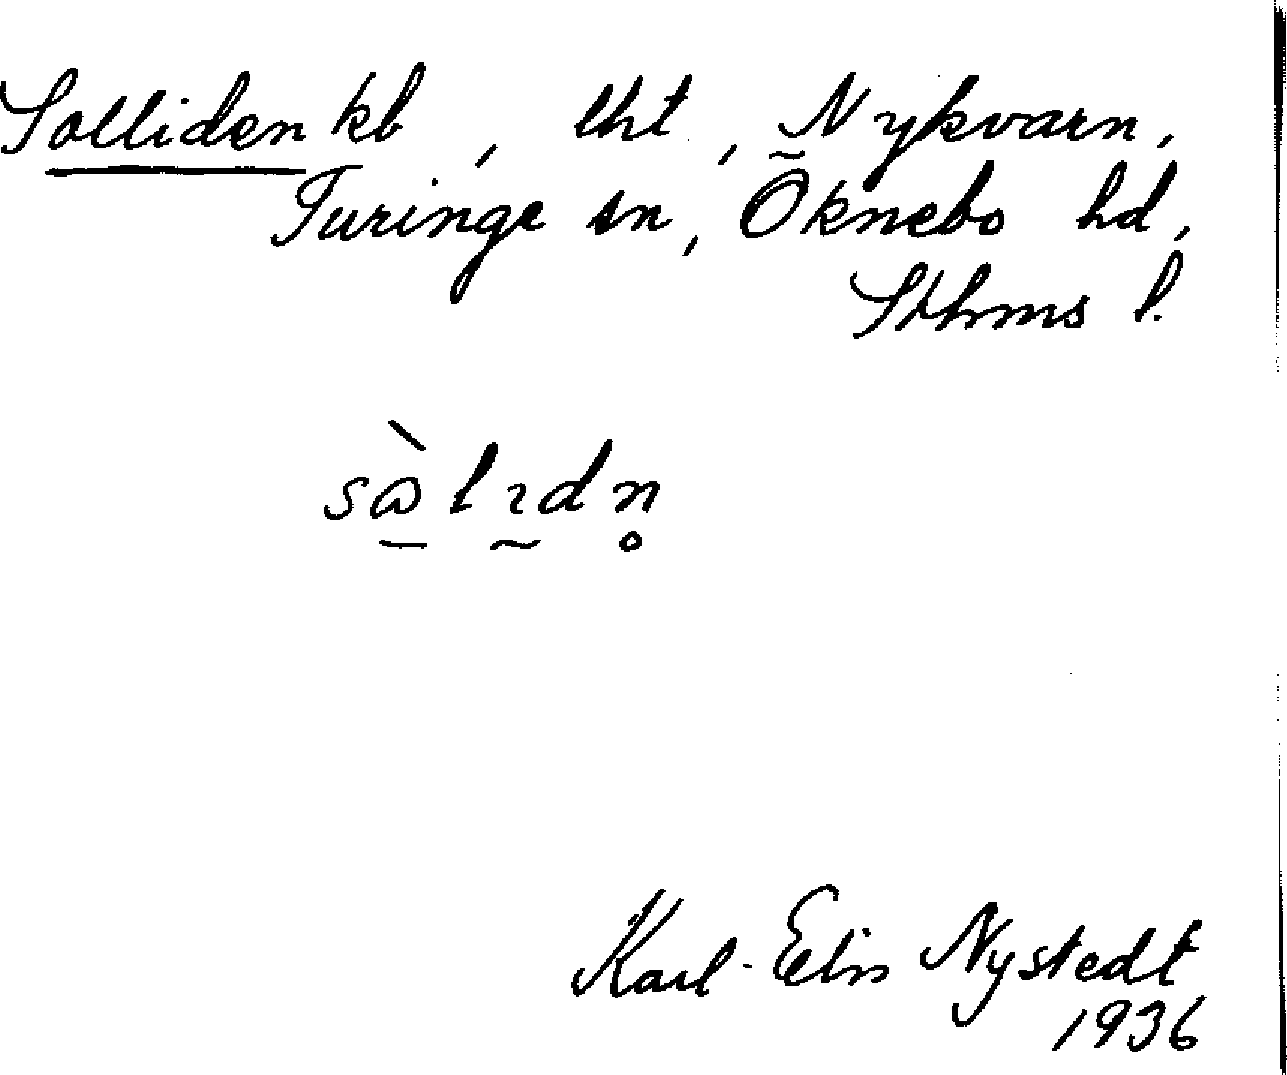 Solliden kb, lht, Nykvarn,
Turinge sn, Öknebo hd,
Sthms l.
Karl-Elis Nystedt
1936